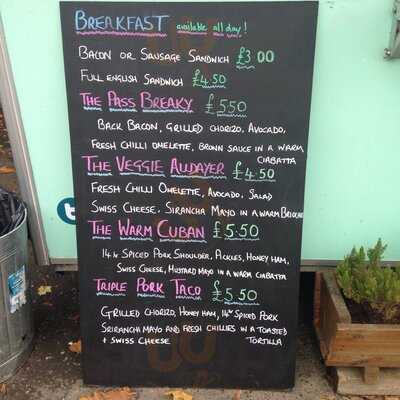 BREAKFAST available all day!
BACON OR SAUSAGE SANDWICH £3 00
FULL ENGLISH SANDWICH £4.50
THE PASS BREAKY £5.50
BACK BACON, GRILLED CHORIZO, AVOCADO,
FRESH CHILLI OMELETTE, BROWN SAUCE IN A WARM
CIABATTA
THE VEGGIE ALLDAYER £4.50
FRESH CHILLI OMELETTE, AVOCADO, SALAD
SWISS CHEESE, SIRANCHA MAYO IN A WARM BRIOCHE
THE WARM CUBAN £5.50
14hr SPICED PORK SHOULDER, PICKLES, HONEY HAM,
SWISS CHEESE, MUSTARD MAYO IN A WARM CIABATTA
TRIPLE PORK TACO £5.50
GRILLED CHORIZO, HONEY HAM, 14hr SPICED PORK
SRIRANCHA MAYO AND FRESH CHILLIES IN A TOASTED
+ SWISS CHEESE TORTILLA